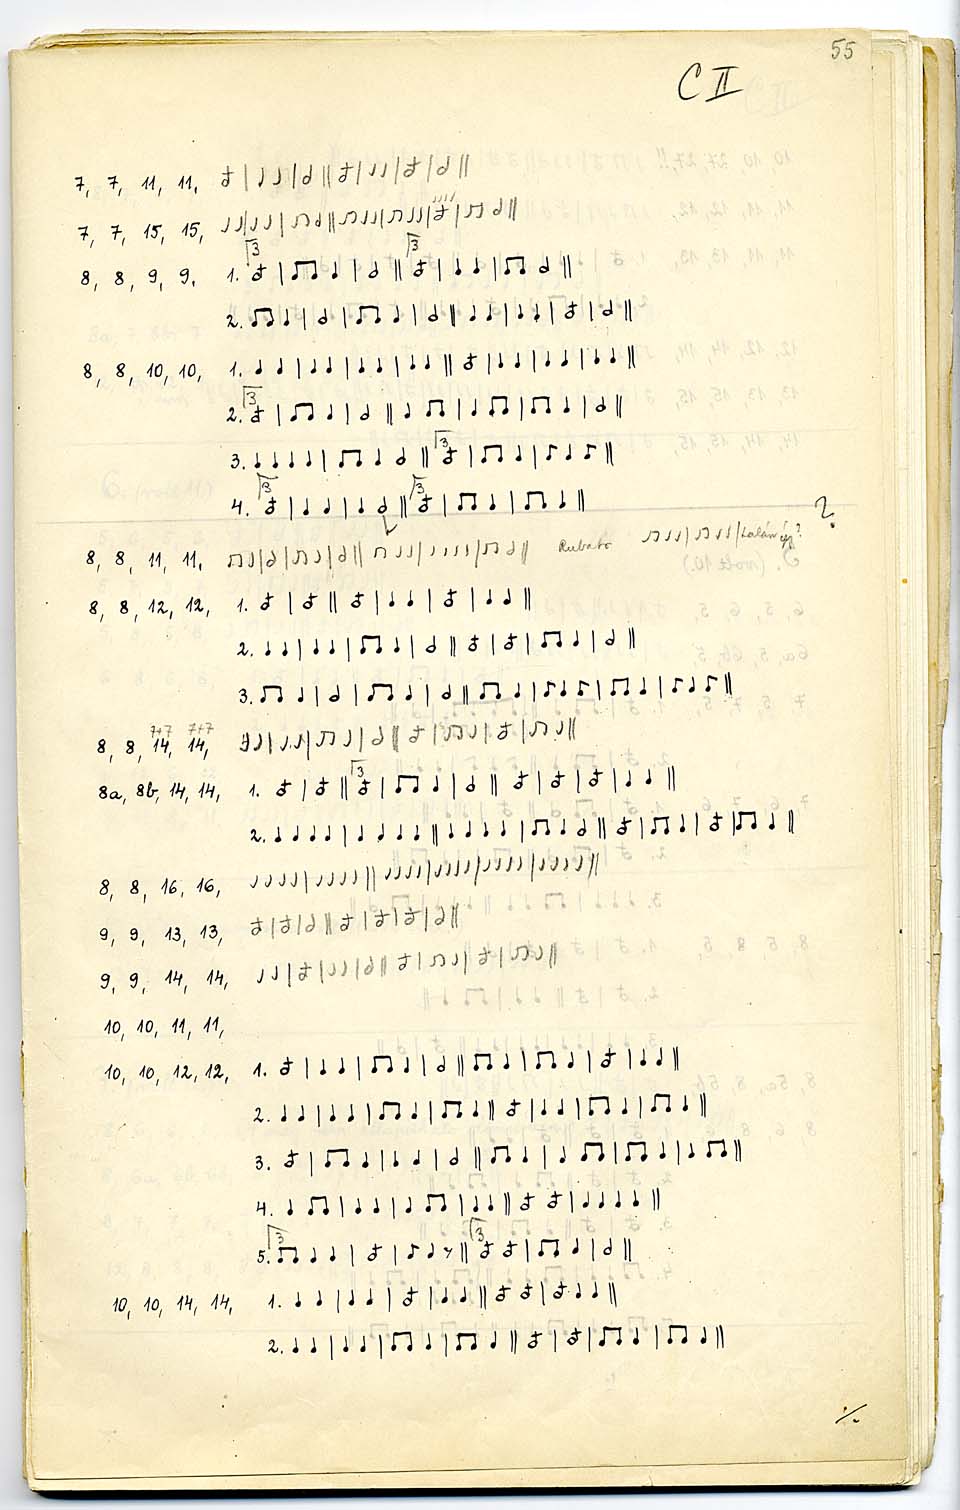 55
C II
7, 7, 11, 11,
7, 7, 15, 15,
3 3
8, 8, 9, 9, 1.
2.
8, 8, 10, 10, 1.
3
2.
3
3.
3 3
4.
?
8, 8, 11, 11, Rubato talán így?
8, 8, 12, 12, 1.
2.
3.
7+7 7+7
8, 8, 14, 14,
3
8a, 8b, 14, 14, 1.
2.
8, 8, 16, 16,
9, 9, 13, 13,
9, 9, 14, 14,
10, 10, 11, 11,
10, 10, 12, 12, 1.
2.
3.
4.
3 3
5.
10, 10, 14, 14, 1.
2.
./.